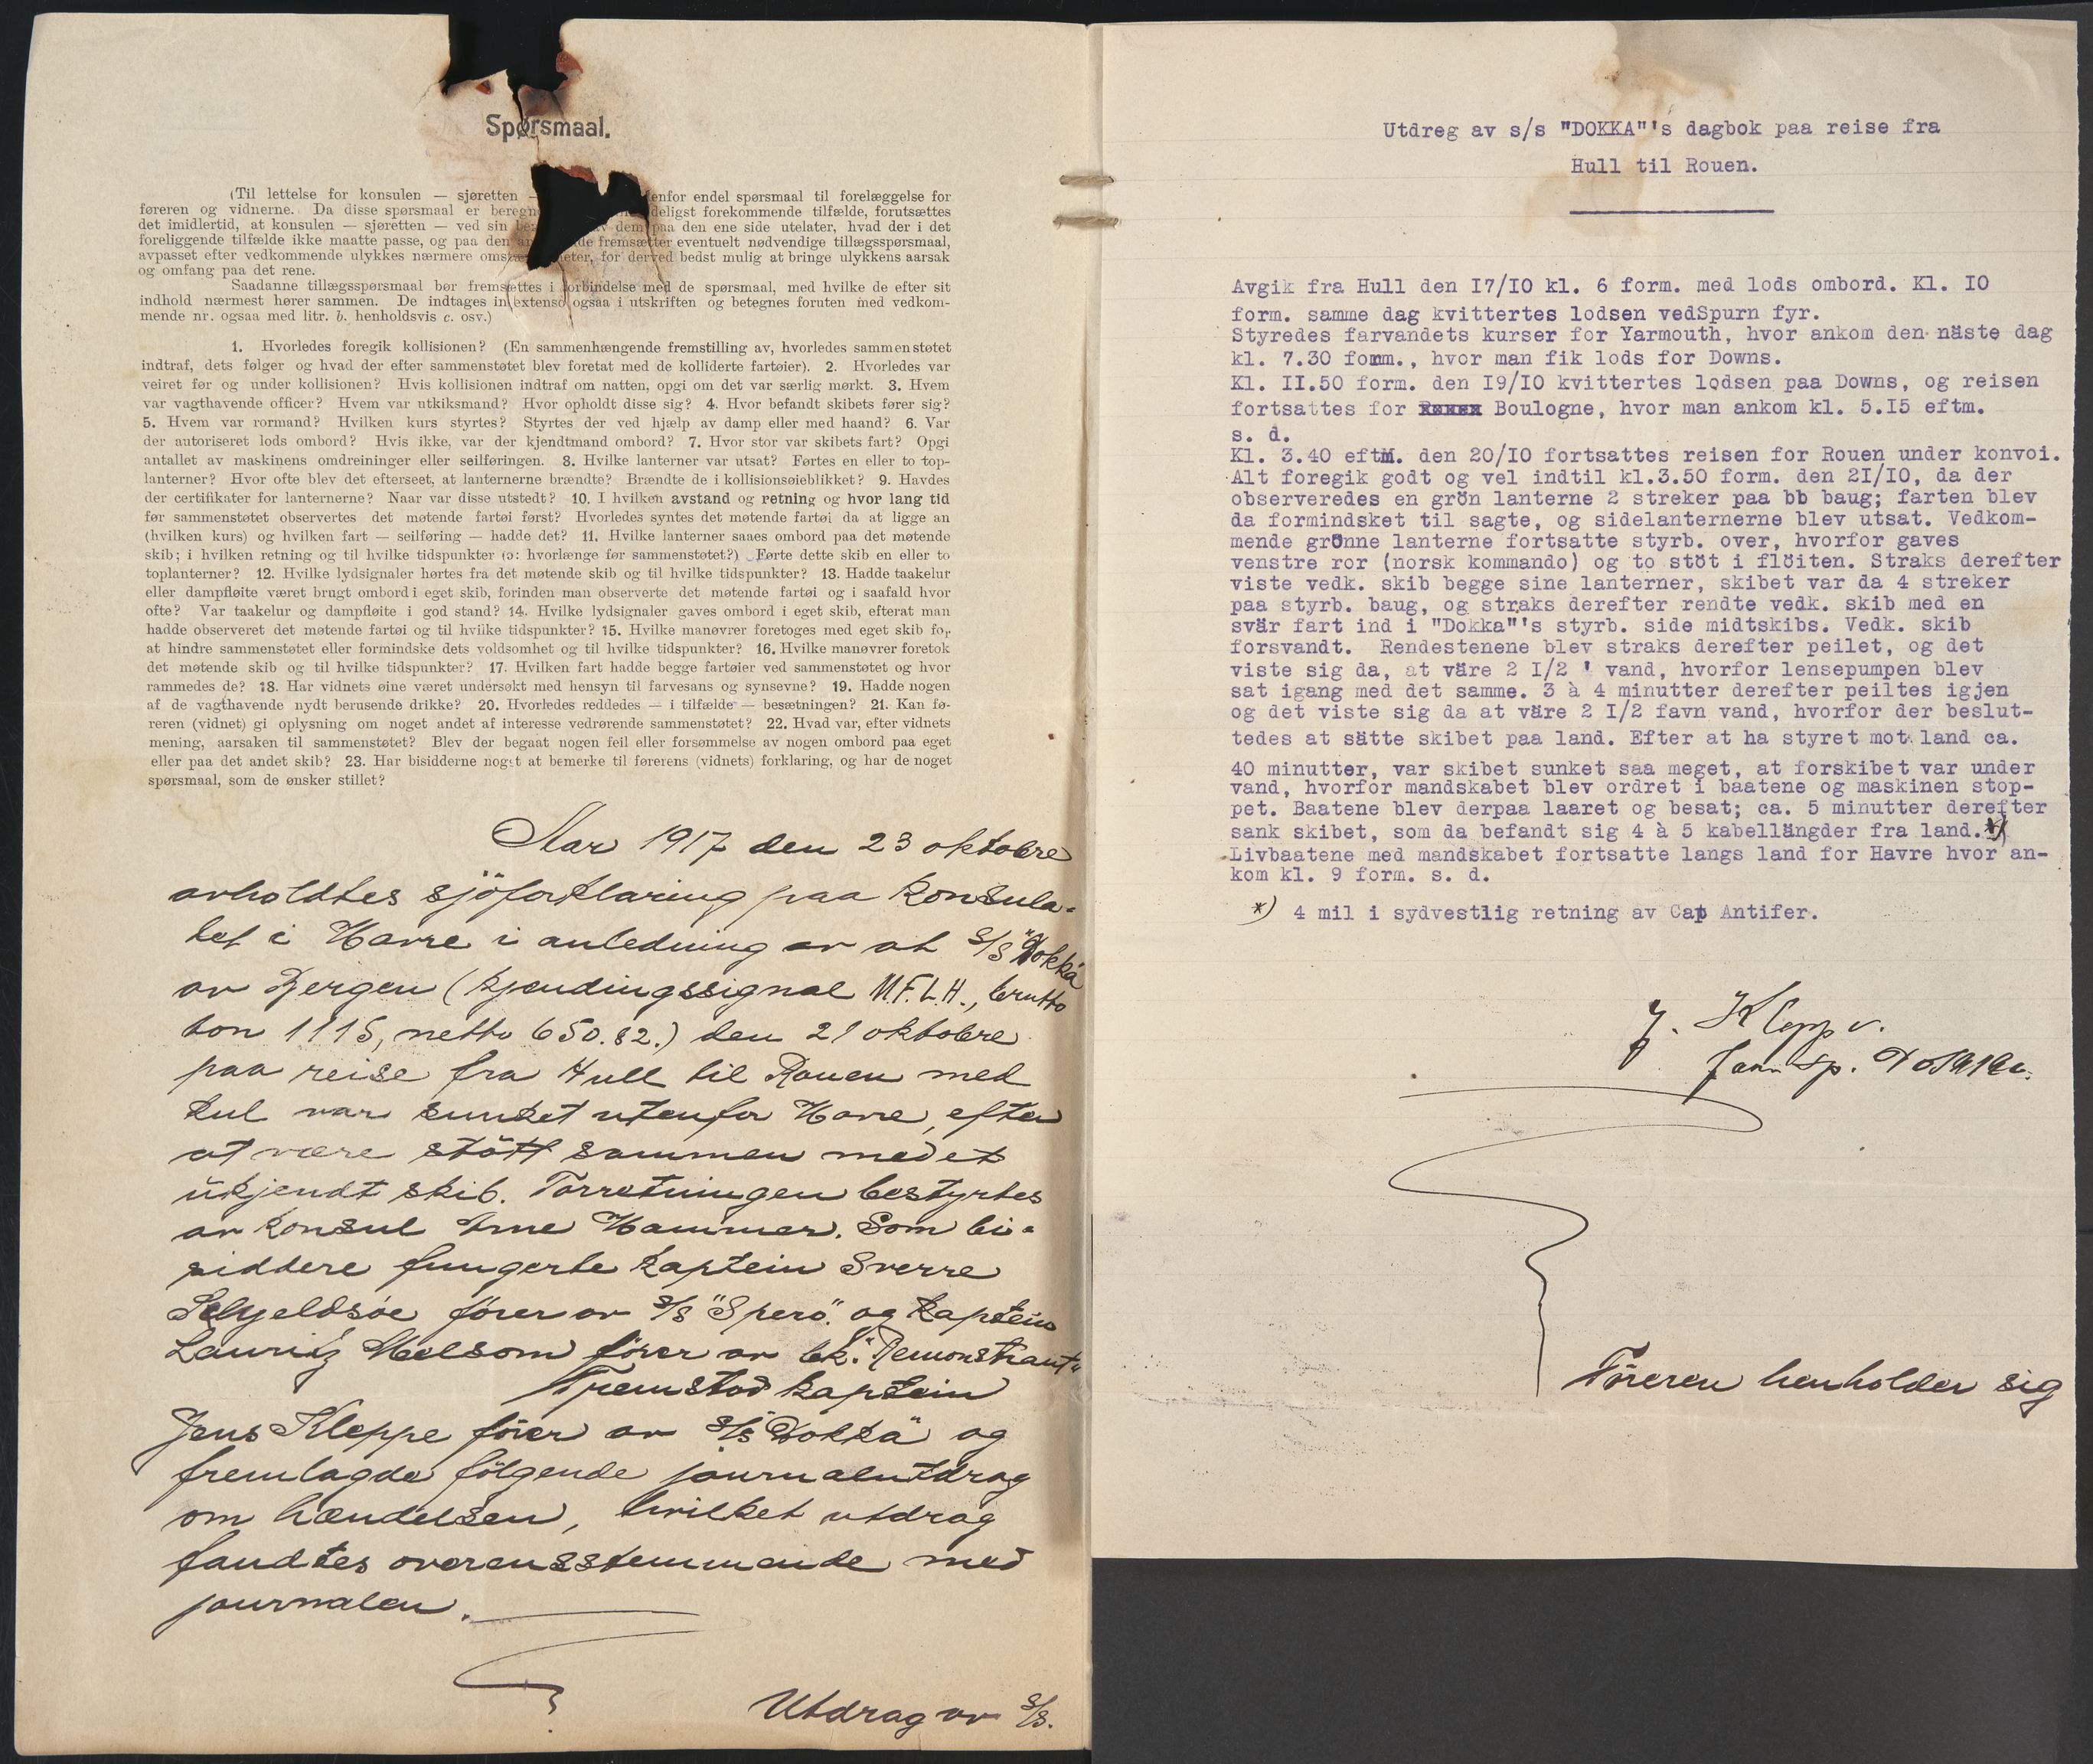 Spørsmaal.
(Til lettelse for konsulen — sjøretten — enfor endel spørsmaal til forelæggelse for
føreren og vidnerne. Da disse spørsmaal er beregn deligst forekommende tilfælde, forutsættes
det imidlertid, at konsulen — sjøretten — ved sin dem paa den ene side utelater, hvad der i det
foreliggende tilfælde ikke maatte passe, og paa den de fremsætter eventuelt nødvendige tillægsspørsmaal,
avpasset efter vedkommende ulykkes nærmere heter, for derved bedst mulig at bringe ulykkens aarsak
og omfang paa det rene.
Saadanne tillægsspørsmaal bør fremsættes i forbindelse med de spørsmaal, med hvilke de efter sit
indhold nærmest hører sammen. De indtages in extenso ogsaa i utskriften og betegnes foruten med vedkom-
mende nr. ogsaa med litr. b. henholdsvis c. osv.)
1. Hvorledes foregik kollisionen? (En sammenhængende fremstilling av, hvorledes sammenstøtet
indtraf, dets følger og hvad der efter sammenstøtet blev foretat med de kolliderte fartøier). 2. Hvorledes var
veiret før og under kollisionen? Hvis kollisionen indtraf om natten, opgi om det var særlig mørkt. 3. Hvem
var vagthavende officer? Hvem var utkiksmand? Hvor opholdt disse sig? 4. Hvor befandt skibets fører sig?
5. Hvem var rormand? Hvilken kurs styrtes? Styrtes der ved hjælp av damp eller med haand? 6. Var
der autoriseret lods ombord? Hvis ikke, var der kjendtmand ombord? 7. Hvor stor var skibets fart? Opgi
antallet av maskinens omdreininger eller seilføringen. 8. Hvilke lanterner var utsat? Førtes en eller to top-
lanterner? Hvor ofte blev det efterseet, at lanternerne brændte? Brændte de i kollisionsøieblikket? 9. Havdes
der certifikater for lanternerne? Naar var disse utstedt? 10. I hvilken avstand og retning og hvor lang tid
før sammenstøtet observertes det møtende fartøi først? Hvorledes syntes det møtende fartøi da at ligge an
(hvilken kurs) og hvilken fart — seilføring — hadde det? 11. Hvilke lanterner saaes ombord paa det møtende
skib; i hvilken retning og til hvilke tidspunkter (ɔ: hvorlænge før sammenstøtet?) Førte dette skib en eller to
toplanterner? 12. Hvilke lydsignaler hørtes fra det møtende skib og til hvilke tidspunkter? 13. Hadde taakelur
eller dampfløite været brugt ombord i eget skib, forinden man observerte det møtende fartøi og i saafald hvor
ofte? Var taakelur og dampfløite i god stand? 14. Hvilke lydsignaler gaves ombord i eget skib, efterat man
hadde observeret det møtende fartøi og til hvilke tidspunkter? 15. Hvilke manøvrer foretoges med eget skib for
at hindre sammenstøtet eller formindske dets voldsomhet og til hvilke tidspunkter? 16. Hvilke manøvrer foretok
det møtende skib og til hvilke tidspunkter? 17. Hvilken fart hadde begge fartøier ved sammenstøtet og hvor
rammedes de? 18. Har vidnets øine været undersøkt med hensyn til farvesans og synsevne? 19. Hadde nogen
af de vagthavende nydt berusende drikke? 20. Hvorledes reddedes — i tilfælde — besætningen? 21. Kan fø-
reren (vidnet) gi oplysning om noget andet af interesse vedrørende sammenstøtet? 22. Hvad var, efter vidnets
mening, aarsaken til sammenstøtet? Blev der begaat nogen feil eller forsømmelse av nogen ombord paa eget
eller paa det andet skib? 23. Har bisidderne noget at bemerke til førerens (vidnets) forklaring, og har de noget
spørsmaal, som de ønsker stillet?
Aar 1917 den 23 oktobre
avholdtes sjöforklaring paa konsula-
tet i Havre i anledning av at s/s "Dokka"
av Bergen (kjendingssignal M.F.L.H., brutto
ton 1115, netto 650.82.) den 21 oktobre
paa reise fra Hull til Rouen med
kul var sunket utenfor Havre, efter
at være stött sammen med et
ukjendt skib. Forretningen bestyrtes
av konsul Arne Hammer. Som bi-
siddere fungerte kaptein Sverre
Selyeldsøe fører av s/s "Spero". og kaptein
Lauritz Melsom förer av bk. "Demonstrant"
Fremstod kaptein
Jens Kleppe förer av s/s "Dokka" og
fremlagde følgende journalutdrag
om hændelsen, hvilket utdrag
fandtes overensstemmende med
journalen.
Utdrag av s/s.
Utdreg av s/s "DOKKA"'s dagbok paa reise fra
Hull til Rouen.
Avgik fra Hull den I7/IO kl. 6 form. med lods ombord. Kl. IO
form. samme dag kvittertes lodsen vedSpurn fyr.
Styredes farvandets kurser for Yarmouth, hvor ankom den näste dag
kl. 7.30 form., hvor man fik lods for Downs.
Kl. II.50 form. den I9/IO kvittertes lodsen paa Downs, og reisen
fortsattes for Boulogne, hvor man ankom kl. 5.I5 eftm.
s. d.
Kl. 3.40 eftm. den 20/IO fortsattes reisen for Rouen under konvoi.
Alt foregik godt og vel indtil kl.3.50 form. den 2I/IO, da der
observeredes en grön lanterne 2 streker paa bb baug; farten blev
da formindsket til sagte, og sidelanternerne blev utsat. Vedkom-
mende grönne lanterne fortsatte styrb. over, hvorfor gaves
venstre ror (norsk kommando) og to stöt i flöiten. Straks derefter
viste vedk. skib begge sine lanterner, skibet var da 4 streker
paa styrb. baug, og straks derefter rendte vedk. skib med en
svär fart ind i "Dokka"'s styrb. side midtskibs. Vedk. skib
forsvandt. Rendestenene blev straks derefter peilet, og det
viste sig da, at väre 2 I/2 ' vand, hvorfor lensepumpen blev
sat igang med det samme. 3 à 4 minutter derefter peiltes igjen
og det viste sig da at väre 2 I/2 favn vand, hvorfor der beslut-
tedes at sätte skibet paa land. Efter at ha styret mot land ca.
40 minutter, var skibet sunket saa meget, at forskibet var under
vand, hvorfor mandskabet blev ordret i baatene og maskinen stop-
pet. Baatene blev derpaa laaret og besat; ca. 5 minutter derefter
sank skibet, som da befandt sig 4 à 5 kabellängder fra land.*)
Livbaatene med mandskabet fortsatte langs land for Havre hvor an-
kom kl. 9 form. s. d.
*) 4 mil i sydvestlig retning av Cap Antifer.
J. Kleppe.
Dokka.
Föreren henholder sig